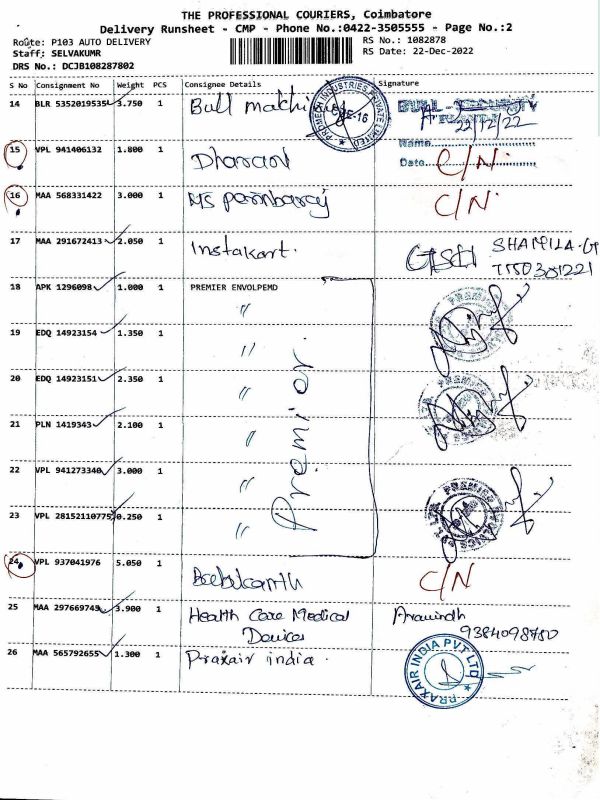 THE PROFESSIONAL COURIERS, Coimbatore
Delivery Runsheet - CMP - Phone No.:0422-3505555 - Page No.:2
Route: P103 AUTO DELIVERY
RS No.: 1082878
Staff: SELVAKUMR
RS Date: 22-Dec-2022
DRS No.: DCJB108287802
S No Consignment No Weight PCS Consignee Details Signature
14 BLR 5352019535 3.750 1 Bull machines
22/12/22
Name
15 VPL 941406132 1.800 1 C/N
Date
16 MAA 568331422 3.000 1 C/N
17 MAA 291672413 2.050 1 Instakart.
18 APK 1296098 1.000 1 PREMIER ENVOLPEMD
19 EDQ 14923154 1.350 1 "
20 EDQ 14923151 2.350 1 "
21 PLN 1419343 2.100 1 "
Premier
22 VPL 941273340 3.000 1 "
23 VPL 28152110775 0.250 1 "
24 VPL 937041976 5.050 1 C/N
25 MAA 297669749 3.900 1 Health Care Medical Aravindh
Devices 9384098780
26 MAA 565792655 1.300 1 Praxair india.
PRAXAIR INDIA PVT LTD